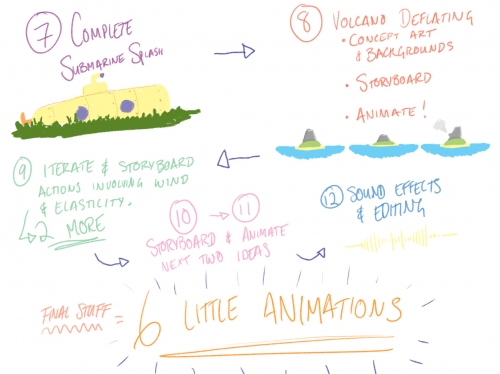 7 COMPLETE
SUBMARINE SPLASH
8 VOLCANO DEFLATING
• CONCEPT ART
& BACKGROUNDS
• STORYBOARD
• ANIMATE!
9 ITERATE & STORYBOARD
ACTIONS INVOLVING WIND
& ELASTICITY.
2 MORE
10 → 11
STORYBOARD & ANIMATE
NEXT TWO IDEAS
12 SOUND EFFECTS
& EDITING
FINAL STUFF = 6 LITTLE ANIMATIONS